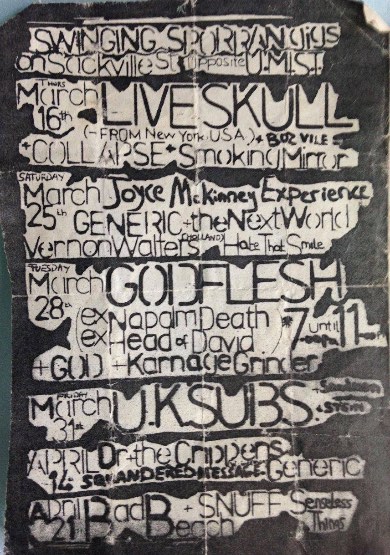 SWINGING SPORRAN gigs
on Sackville St opposite U.M.I.S.T.
THURS
March 16th LIVE SKULL
(-FROM New York, USA) + BOZ VILES
+ COLLAPSE + Smoking Mirror
SATURDAY
March 25th Joyce McKinney Experience
GENERIC + the Next World
Vernon Walters (HOLLAND) Hate That Smile
TUESDAY
March 28th GODFLESH
(ex Napam Death
(ex Head of David
7 until 11
+ GOD + Karnage Grinder
FRIDAY
March 31st U.K. SUBS
APRIL 14 Dr + the Crippens
SQUANDERED MESSAGE Generic
April 21 Bad Beach + SNUFF Senseless Things